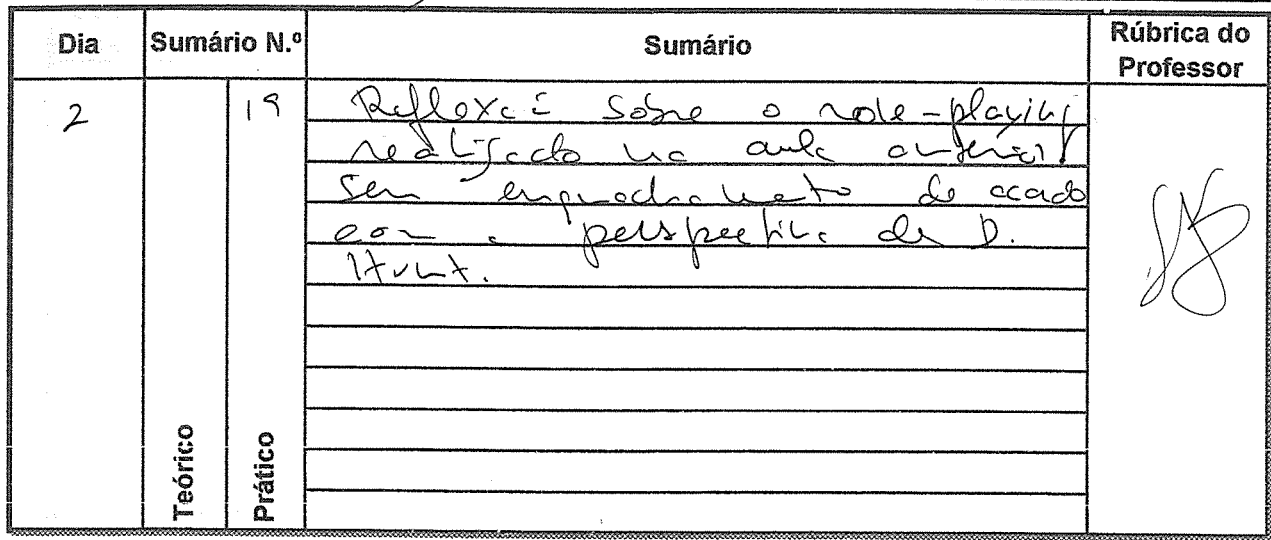 Dia Sumário N.º Sumário Rúbrica do Professor
2 19 Reflexão sobre o role-playing
realizado na aula anterior
seu enquadramento de acordo
com a perspectiva de D.
Hunt.
Teórico Prático